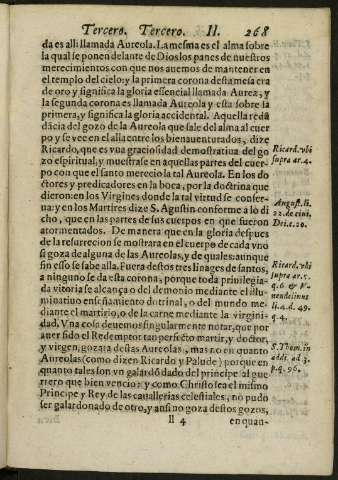 Tercero. Tercero. II. 268
da es alli llamada Aureola. La mesma es el alma sobre
la qual se ponen delante de Dios los panes de nuestros
merecimientos con que nos auemos de mantener en
el templo del cielo: y la primera corona desta mesa era
de oro y significa la gloria essencial llamada Aurea, y
la segunda corona es llamada Aureola y esta sobre la
primera, y significa la gloria accidental. Aquella redũ
dãcia del gozo de la Aureola que sale del alma al cuer
po y se vee en el alla entre los bienauenturados, dize
Ricardo, que es vua graciosidad demostratiua del go
zo espiritual, y muestrase en aquellas partes del cuer
po con que el santo merecio la tal Aureola. En los do
ctores y predicadores en la boca, por la doctrina que
dieron: en los Virgines donde la tal virtud se conser-
ua: y en los Martires dize S. Agustin conforme a lo di
cho, que en las partes de sus cuerpos en que fueron
atormentados. De manera que en la gloria despues
de la resurreccion se mostrara en el cuerpo de cada vno
si goza de alguna de las Aureolas, y de quales: aunque
sin esso se sabe alla. Fuera destos tres linages de santos,
a ninguno se da esta corona, porque toda priuilegia-
da vitoria se alcança o del demonio mediante el illu-
minatiuo enseñamiento dotrinal, o del mundo me-
diante el martirio, o de la carne mediante la virgini-
dad. Vna cosa deuemos singularmente notar, que por
auer sido el Redemptor tan perfecto martir, y doctor,
y virgen, gozara destas Aureolas, mas no en quanto
Aureolas (como dizen Ricardo y Palude) porque en
quanto tales son vn galardõ dado del principe al gue
rrero que bien vencio: y como Christo sea el mismo
Principe y Rey de las cauallerias celestiales, no pudo
ser galardonado de otro, y ansi no goza destos gozos,
ll 4 en quan-
Ricard. vbi
supra ar. 4.
August. li.
22. de ciui.
Dei. c. 20.
Ricard. vbi
supra ar. 5.
q. 6 &
li. 4. d. 49.
q. 4.
S. Thom. in
addi. ad 3.
p. q. 96.